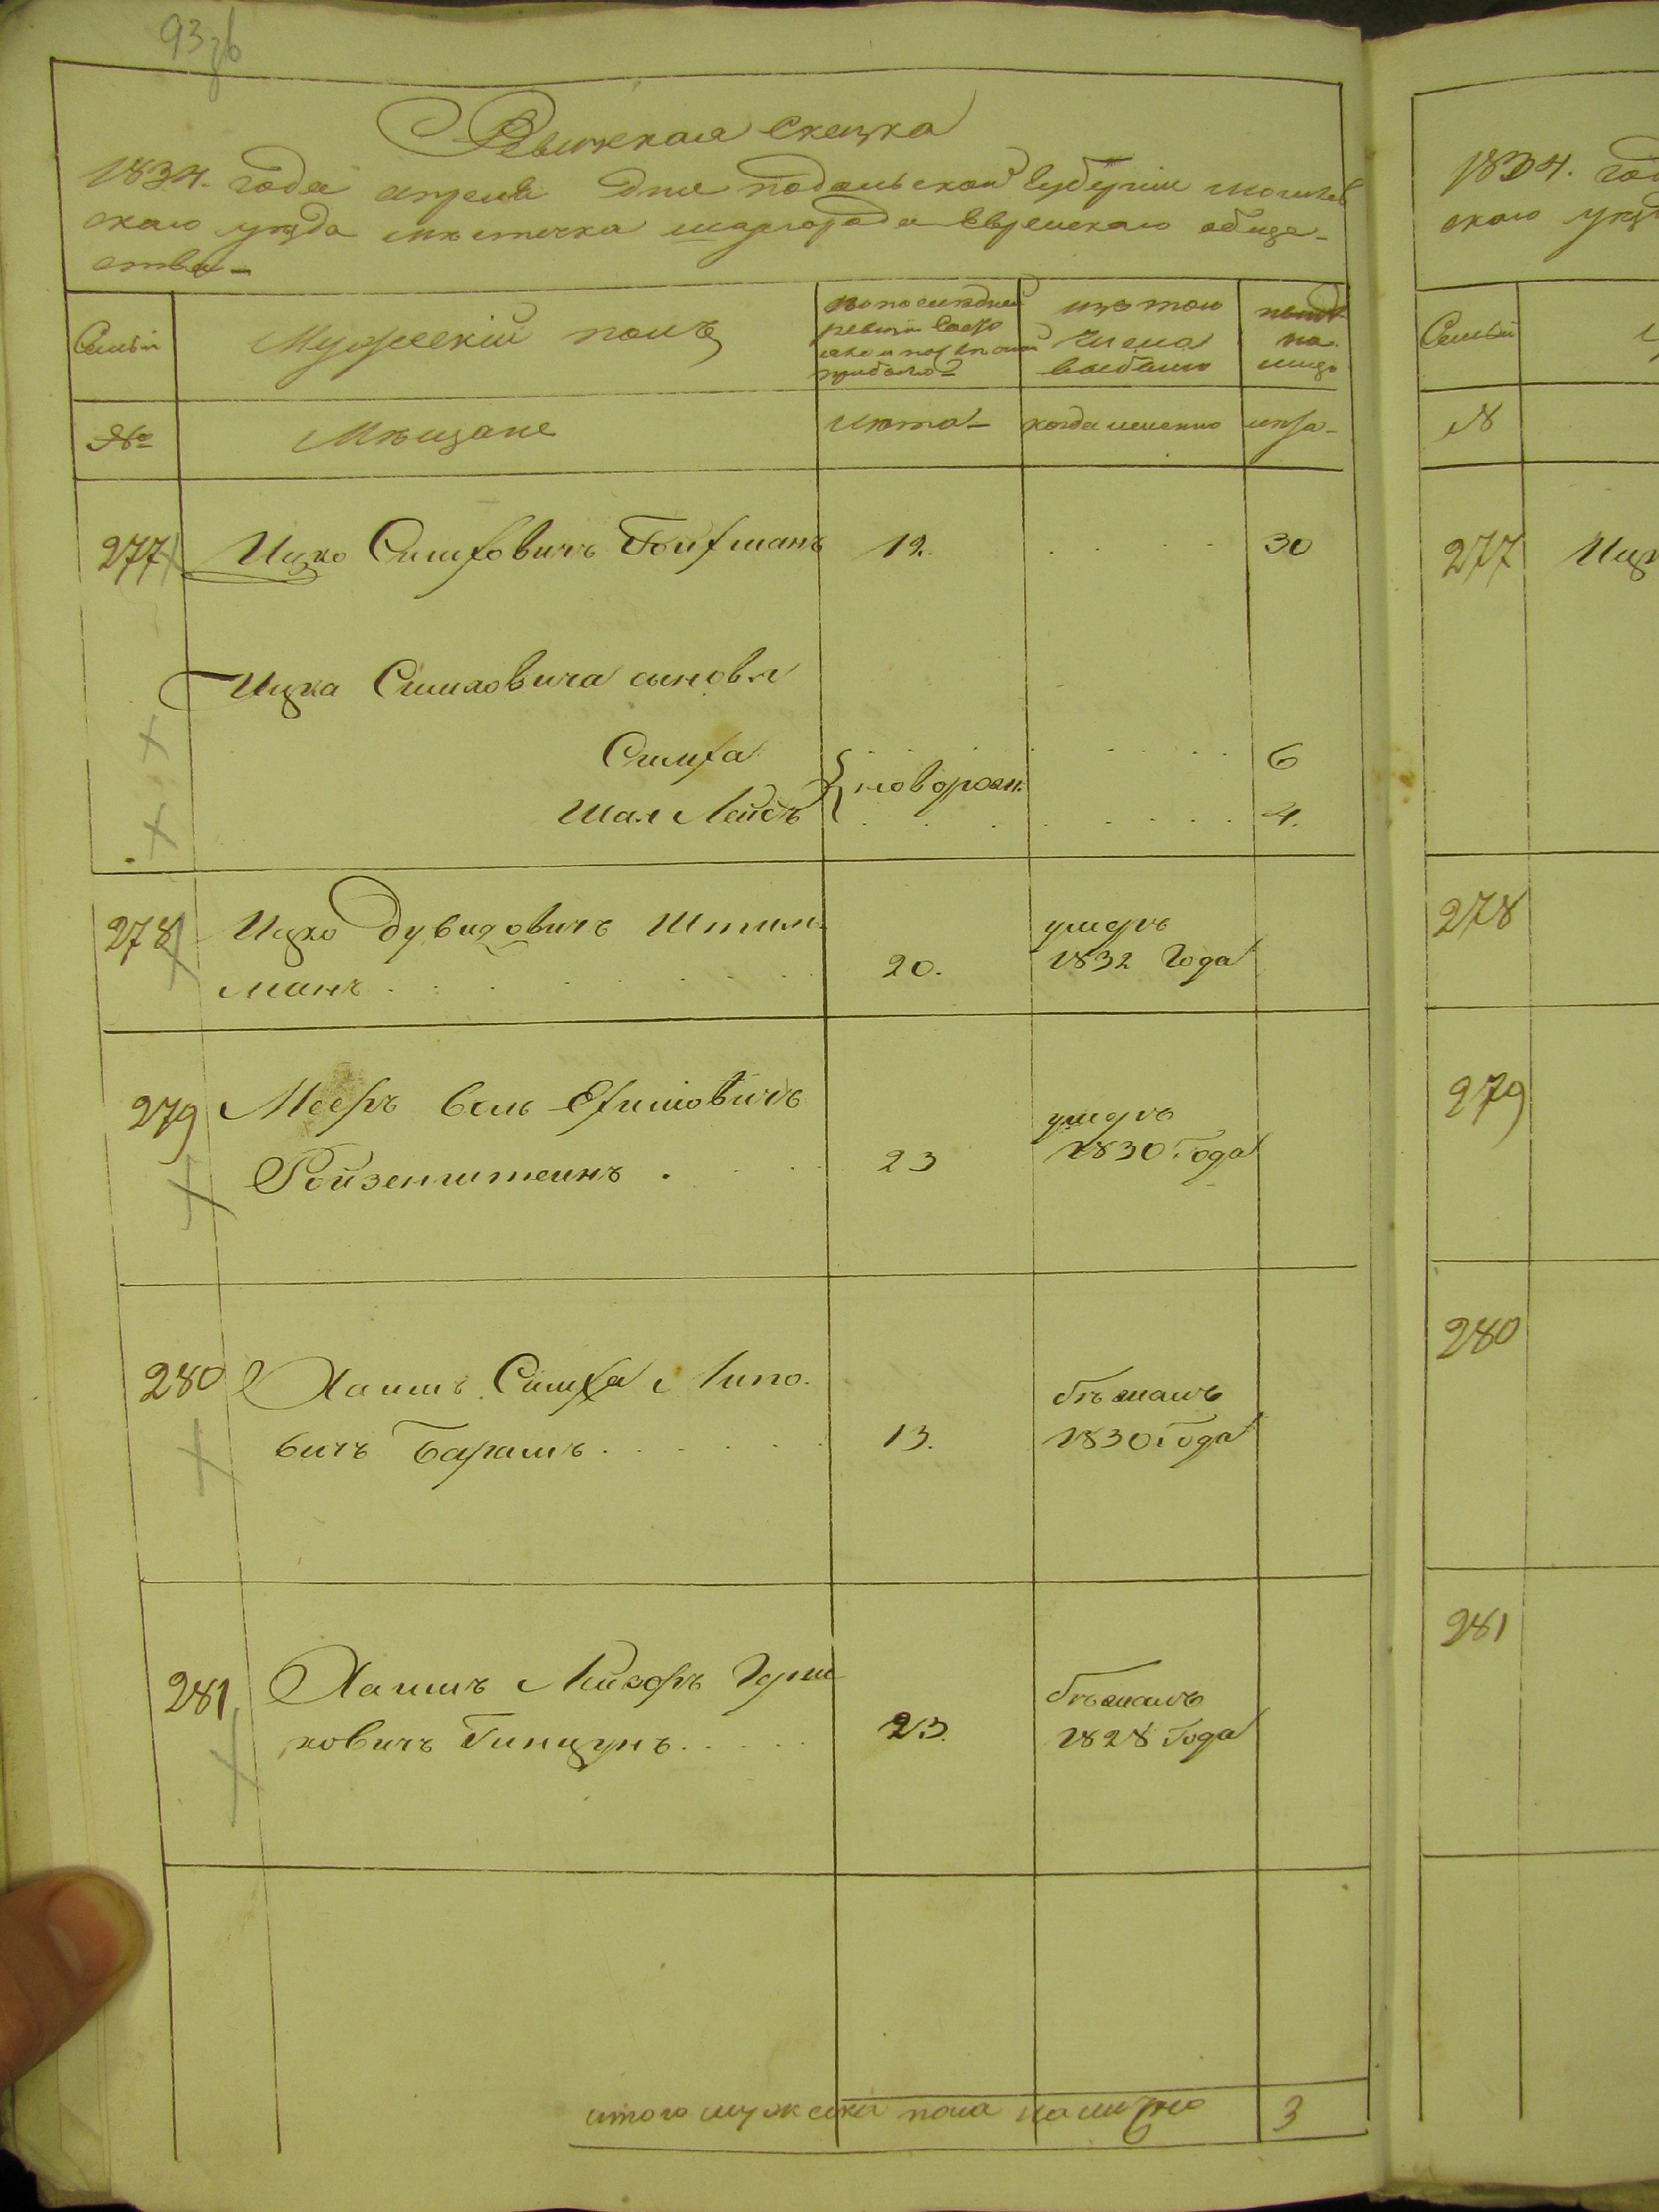 93зв
Ревижская скаска
1834. года апреля дня подольской губернии могилев
скаго уезда местечка шаргорода Еврейскаго обще-
ства-
Семьи
Мужескій полъ
по последней
ревизіи состо
яло и после оной
прибыло
изъ того
числа
выбыло
ныне
на
лицо
№
Мѣщане
лѣта-
когда именно
лѣта-
277 Ицко Симховичъ Гойхманъ 12. 30
Ицка Симховича сыновья
Симха 6
новорожд.
Шая Лейбъ 4.
278 Ицко Дувидовичъ Штиль
умеръ
манъ 20. 1832 Года
279 Мееръ Бель Ефимовичъ
умеръ
Ройзенштеинъ . 23 1830 Года
280 Хаимъ Симха Липо
бѣжалъ
вичъ Барамъ 13. 1830 Года
281 Хаимъ Лейзоръ Герш
бѣжалъ
ковичъ Гинцунъ 23. 1828 Года
итого мужеска пола налицо 3
1834. год
скаго уезд
Семьи
№
277 Ицк
278
279
280
281